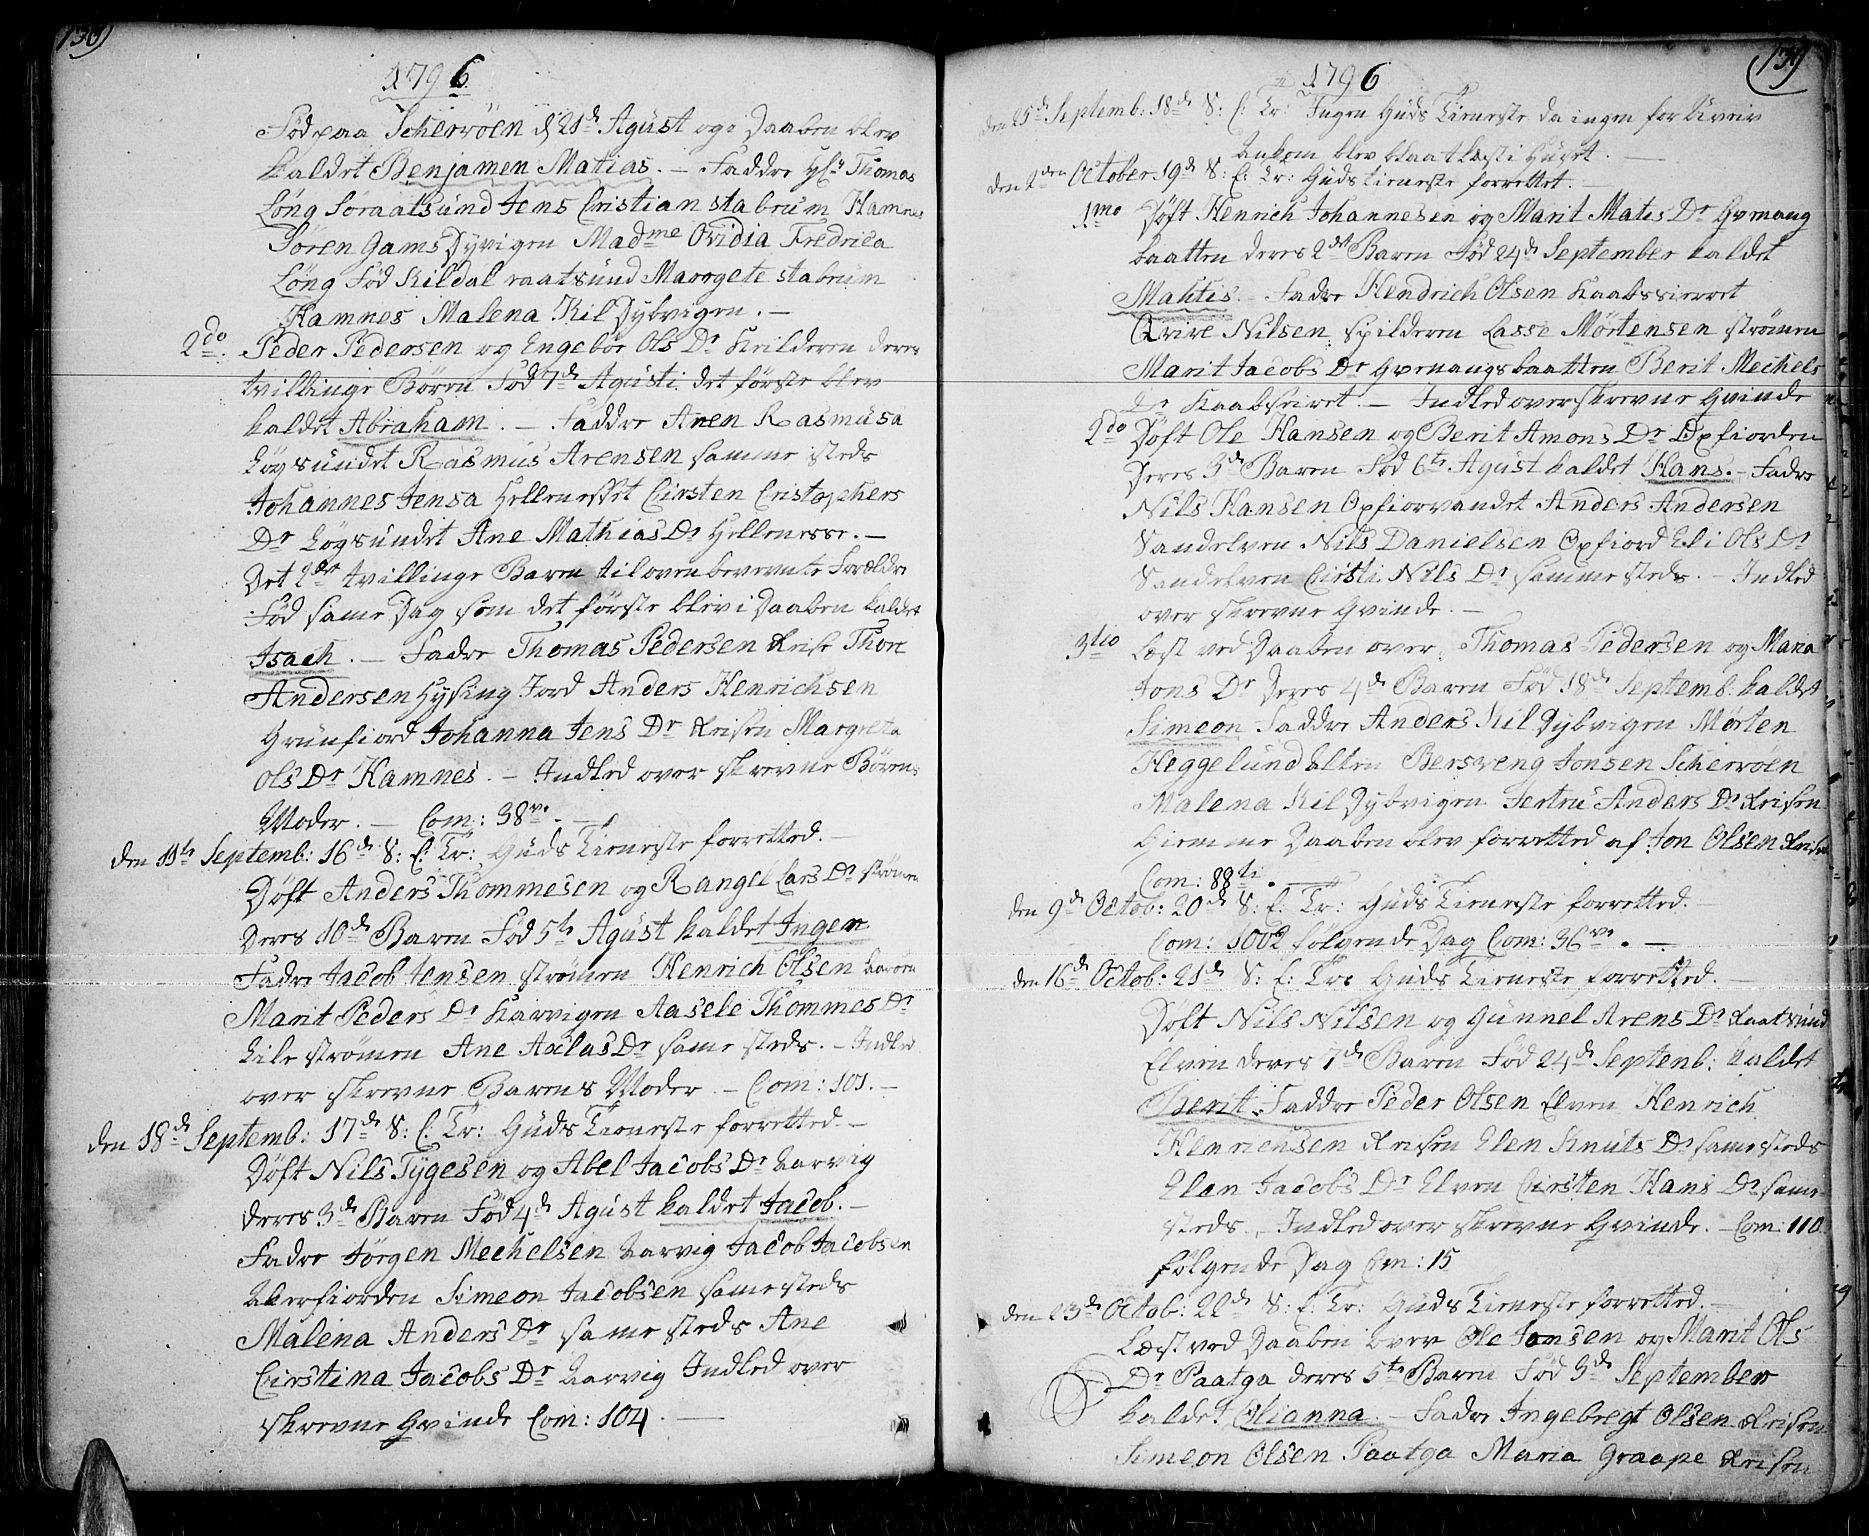 138)
1796
Föd paa Scherröen d: 21d Agüst og i Daaben blev
kaldet Benjamen Matias. — Faddre Thomas
Löng Soraatsund Jens Cristian stabrum Hamnes
Sören Gams Dyvigen Madme Ovidia Fredrica
Löng Föd Kildal raatsund Maregete stabrum
Hamnes Malena Kil Dybvigen. —
2do Peder Pedersen og Engebor Ols Dr Keilderen deres
tvillinge Börn Föd 7d Agusti det förste blev
kaldet Abraham. — Faddre Aren Rasmusa
Lögsundet Rasmus Arensen samme steds
Johannes Jensa Helleneset Cirsten Cristophers
Dr Lögsundet Ane Mathias Dr Hellenesse. —
Det 2det tvillinge Baren til oven bevernte Foreldre
Föd same Dag som det förste blev i Daaben kaldet
Isach. — Fadre Thomas Pedersen Reise Thore
Andersen Hysing Jord Anders Henrichsen
Grunfiord Johanna Jens Dr Reisen Margreta
Ols Dr Hamnes. — Indled over skrevne Börens
Moder. — Com: 38ve. —
den 11te Septemb: 16d S: E: Tr: Guds Tieneste forretted. —
Döft Anders Thommesen og Rangel Lars Dr strömen
Deres 10d Baren Föd 5te Agüst kaldet Ingen
Fadre Jacob Jensen strömen Henrich Olsen
Marit Peders Dr Karvigen Aasele Thommes Dr
Lile strömen Ane Axlas Dr same steds. — Indled
over skrevne Barens Moder — Com: 101. —
den 18d Septemb: 17d S: E: Tr: Guds Tieneste forretted. —
Döft Nils Tygesen og Abel Jacobs Dr Aarvig
deres 3d Baren Föd 4d Agust kaldet Jacob. —
Fadre Jörgen Mechelsen Aarvig Jacob Jacobsen
Akerfiorden Simeon Jacobsen same steds
Malena Anders Dr same steds Ane
Cirstina Jacobs Dr Aarvig Indled over
skrevne Qvinde Com: 104. —
139
1796
den 25d Septemb: 18d S: E: Tr: Ingen Guds Tieneste da ingen for Uveir
Ankom blev blaat læst i Huset. —
den 2den October 19d S: E: Tr: Guds tieneste forrettet. —
1mo Döft Henrich Johannesen og Marit Matis Dr Qvenang
baatten deres 2det Baren Föd 24d September kaldet
Mahtis. — Fadre Hendrich Olsen Kaabsieret
Qvive Nilsen spilderen Lasse Mörtensen strömen
Marit Jacobs Dr Qvenangsbaatten Berit Mechels
Dr Kaabseiret. — Indled over skrevne Qvinde
2do Döft Ole Hansen og Berit Amons Dr Oxfiorden
Deres 3d Baren Föd 6te Agust kaldet Hans. — Fadre
Nils Hansen Oxfiorvandet Anders Andersen
Sandelven Nils Danielsen Oxfiord Eli Ols Dr
Sandelven Cirsti Nils Dr samme steds. — Indled
over skrevne Qvinde. —
3tio Læst ved Daaben over Thomas Pedersen og Maria
Jons Dr Deres 4d Baren Föd 18d Septemb: kaldet
Simeon Faddre Anders Kil Dybvigen Mörten
Heggelund Alten Bersveng Jonsen Scherröen
Malena Kil Dybvigen Jertru Anders Dr Reisen
Hiemme Daaben blev forretted af Jon Olsen Reisen
Com: 88ti. —
den 9d Octob: 20d S: E: Tr: Guds Tieneste forretted. —
Com: 1002 fölgende Dag Com: 36ve. —
den 16d Octob: 21d S: E: Tr: Guds Tieneste forretted. —
Döft Nils Nilsen og Gunnel Arens Dr Raatsund
Elven deres 7d Baren Föd 24d Septenb: kaldet
Berit. Faddre Peder Olsen Elven Henrich
Henrichsen Reisen Elen Knuts Dr same steds
Elen Jacobs Dr Elven Cirsten Hans Dr same
steds. — Indled over skrevne Qvinde. — Com: 110
fölgende Dag Com: 15
den 23d Octob: 22d S: E: Tr: Guds Tieneste forretted. —
Læst ved Daaben over Ole Jonsen og Marit Ols
Dr Paatga deres 5te Baren Föd 3d September
kaldet Olianna. — Fadre Ingebregt Olsen Reisen
Simeon Olsen Paatga Maria Graape Reisen